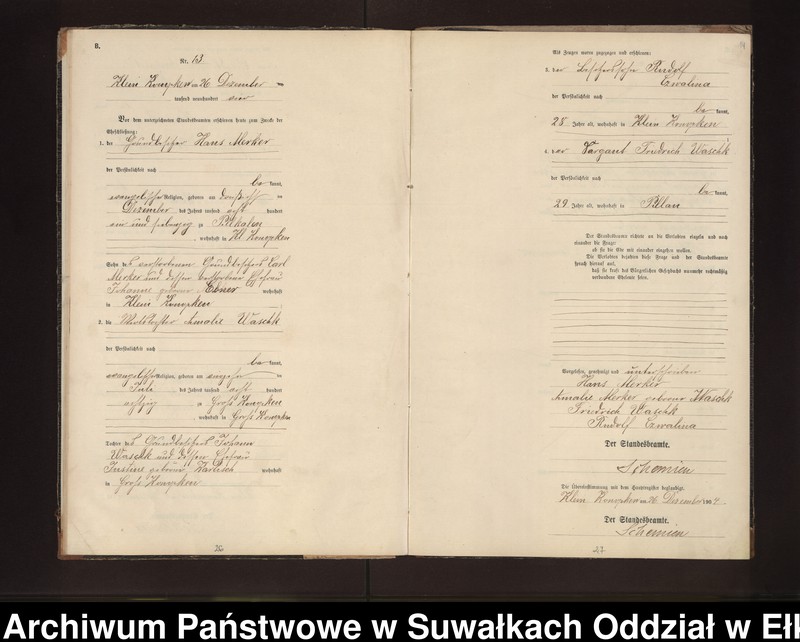 B.
Nr. 13.
Klein Konopken am 26 Dezember
tausend neunhundert vier
Vor dem unterzeichneten Standesbeamten erschienen heute zum Zwecke der
Eheschließung:
1. der Grundbesitzer Hans Merker
der Persönlichkeit nach
be kannt,
evangelischer Religion, geboren am
Dezember des Jahres tausend acht hundert
ein und siebenzig zu Pillkallen
, wohnhaft in Kl. Konopken
Sohn des verstorbenen Grundbesitzers Carl
Merker und dessen verstorbener Ehefrau
Johanne geborene Ebner wohnhaft
in Klein Konopken
2. die Amalie Waschk
der Persönlichkeit nach
be kannt,
evangelischer Religion, geboren am
Juli des Jahres tausend acht hundert
achtzig zu Groß Konopken
, wohnhaft in Groß Konopken
Tochter des Grundbesitzers Johann
Waschk und dessen Ehefrau
Justine geborene wohnhaft
in Groß Konopken
20.
Als Zeugen waren zugezogen und erschienen:
3. der Besitzersohn Rudolf
Czwalina
der Persönlichkeit nach
be kannt,
28 Jahre alt, wohnhaft in Klein Konopken
4. der Sergant Friedrich Waschk
der Persönlichkeit nach
be kannt,
29 Jahre alt, wohnhaft in Pillau
Der Standesbeamte richtete an die Verlobten einzeln und nach
einander die Frage:
ob sie die Ehe mit einander eingehen wollen.
Die Verlobten bejahten diese Frage und der Standesbeamte
sprach hierauf aus,
daß sie kraft des Bürgerlichen Gesetzbuchs nunmehr rechtmäßig
verbundene Eheleute seien.
Vorgelesen, genehmigt und unterschrieben
Hans Merker
Amalie Merker geborene Waschk
Friedrich Waschk
Rudolf Czwalina
Der Standesbeamte.
Schemien
Die Übereinstimmung mit dem Hauptregister beglaubigt.
Klein Konopken am 26. Dezember 1904.
Der Standesbeamte.
Schemien
21.
Archiwum Państwowe w Suwałkach Oddział w Eł